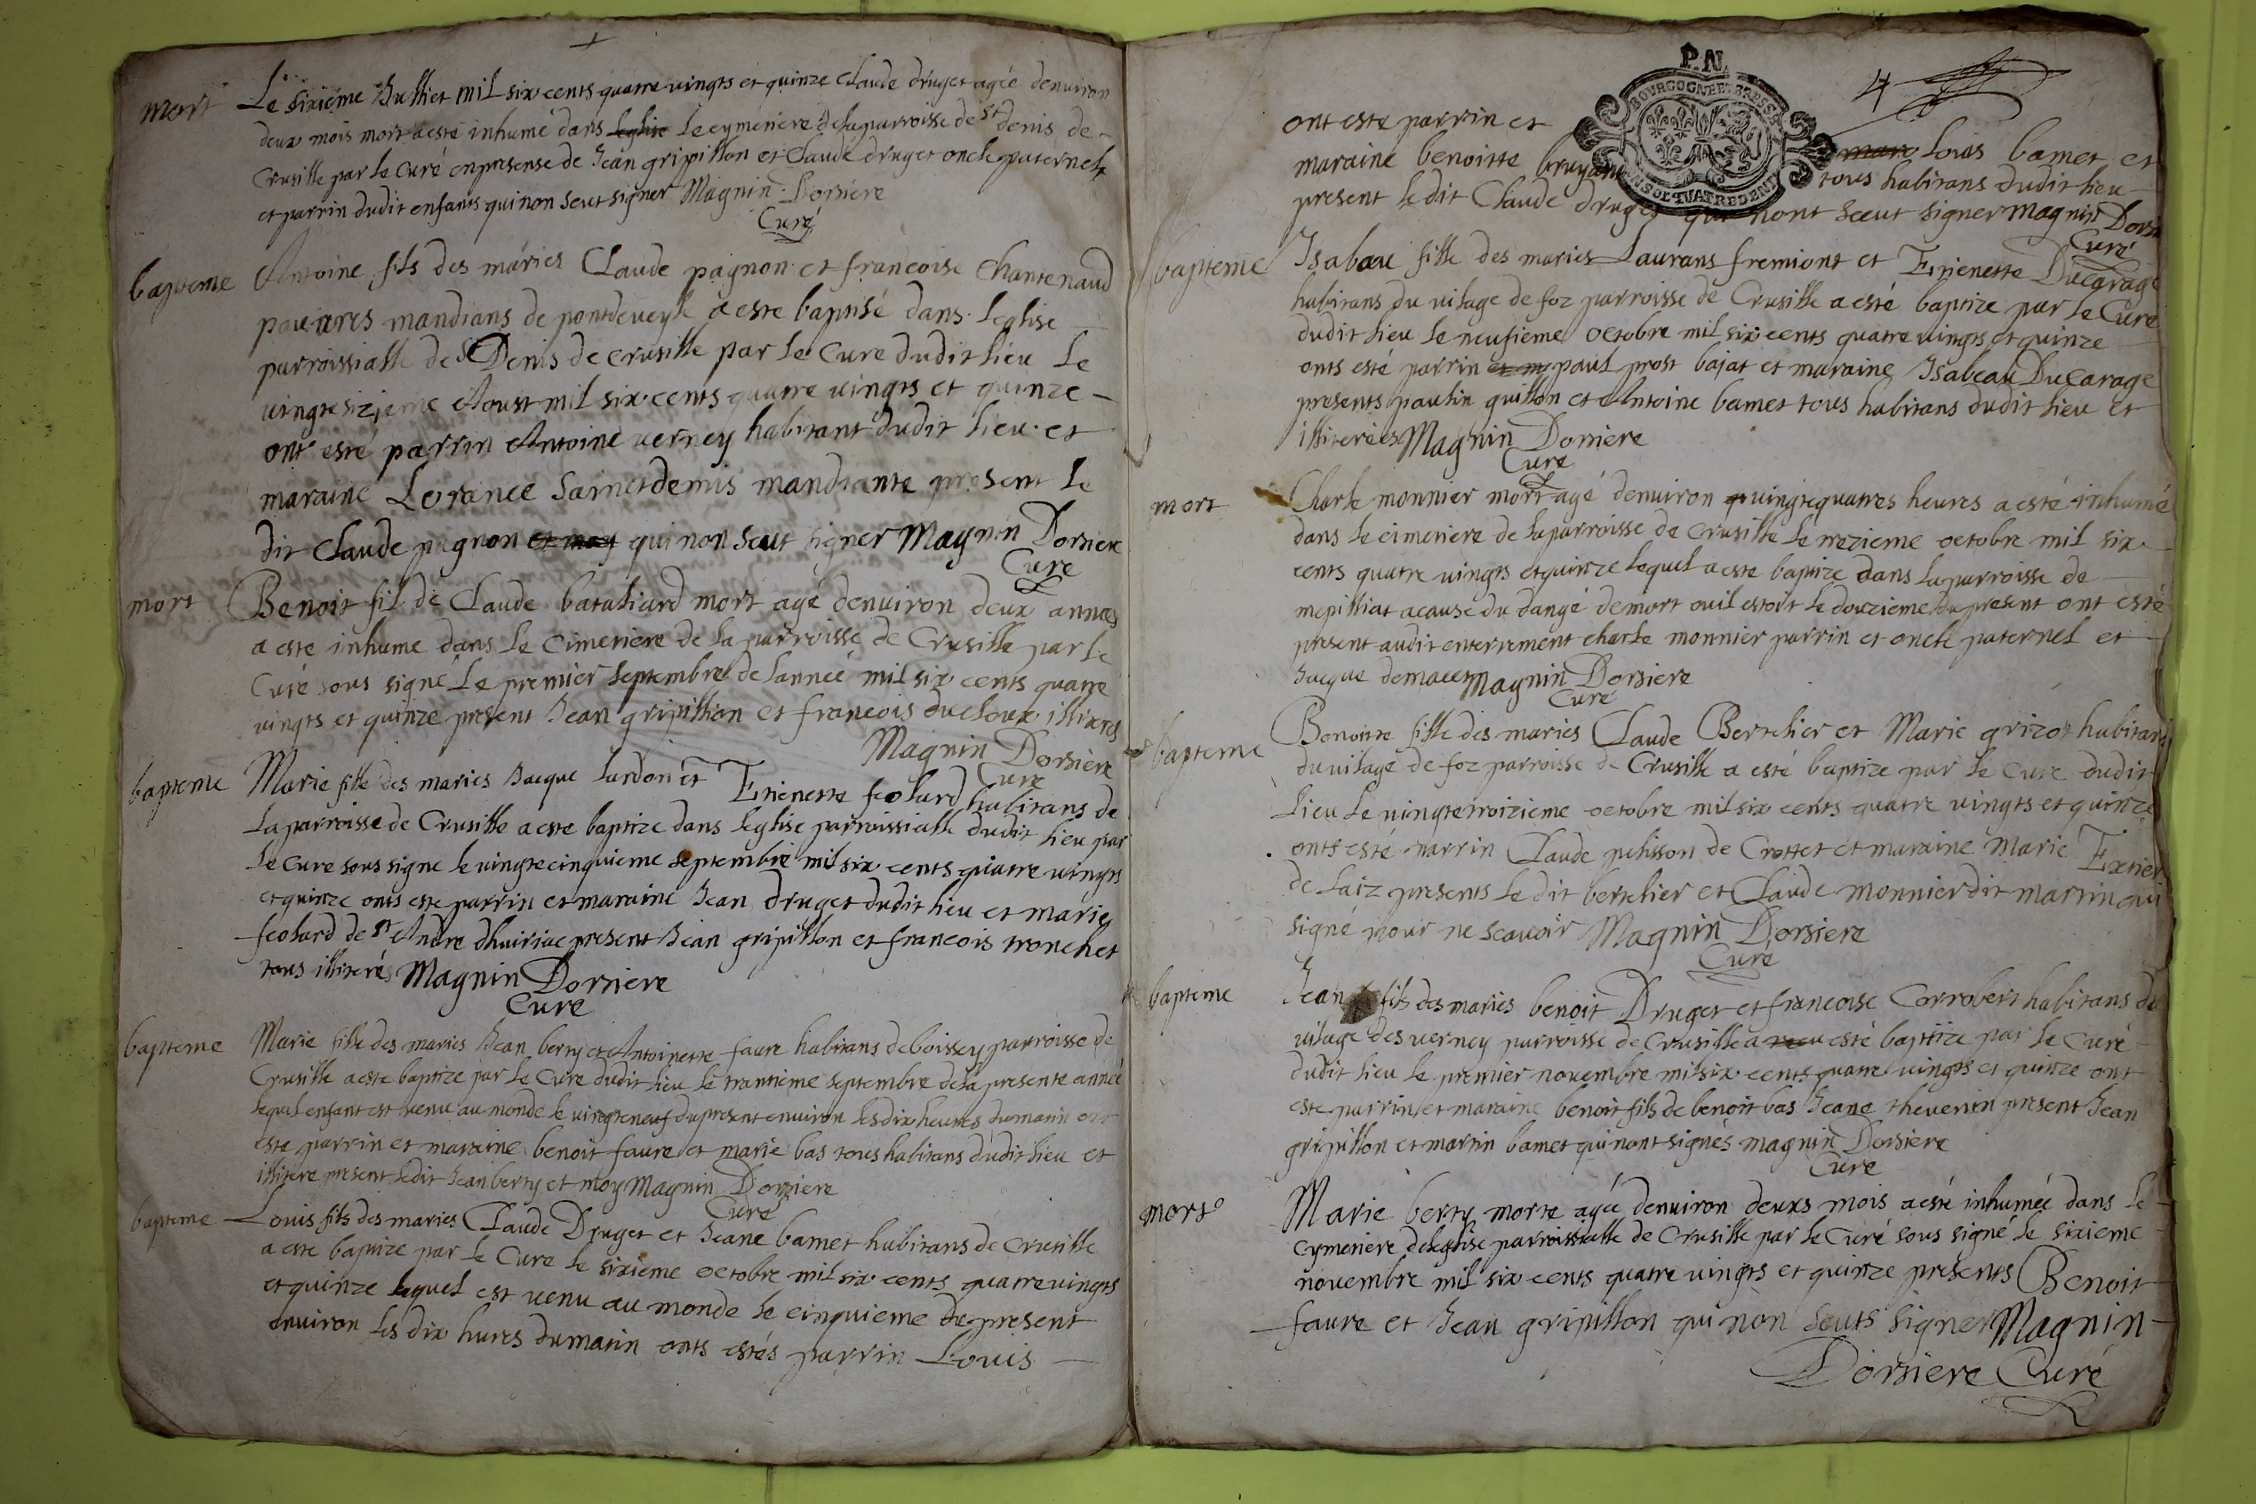 mort
Le sixiéme Julliet mil six cents quatre vingts et quinze Claude druget agée denviron
deux mois mort a esté inhumé dans leglise le cymetiere de la parroisse de St denis de
Crusille par le Curé en presense de Jean gripillon et Claude druget oncle paternel
et parrin dudit enfants qui non seut signer Magnin Dorsiere
Curé
bapteme
Antoine fils des máries Claude pagnon et francoise Chantenaud
pauvres mandians de pontdeveyle a este baptisé dans leglise
parroissialle de St Denis de Crusille par le Cure dudit lieu le
vingtesizieme Aoust mil six cents quatre vingts et quinze
ont esté parrin Antoine verney habitant dudit lieu et
maraine Lorance Sainctdenis mandiante present le
dit Claude pagnon et moy qui non seut signer Magnin Dorsiere
Cure
mort
Benoit fil de Claude bataliard mort agé denviron deux annees
a este inhume dans le Cimetiere de la parroisse de Crusille par le
Curé sous signé le premier septembre de lannée mil six cents quatre
vingts et quinze present Jean gripillion et francois ducloux illitres
Magnin Dorsiere
Cure
bapteme
Marie fille des maries Jacque lardon et Etienette feolard habitans de
la parroisse de Crusille a este baptize dans leglise parroissialle dudit lieu par
le Cure sous signe le vingtecinquieme septembre mil six cents quatre vingts
et quinze onts este parrin et maraine Jean druget dudit lieu et marie
feolard de St Andre dhuiriac present Jean gripillon et francois tronchet
tous illiterés Magnin Dorsiere
Cure
bapteme
Marie fille des maries Jean berty et Antoinette faure habitans de boissey parroisse de
Crusille a este baptize par le Cure dudit lieu le trantieme septembre de la presente année
lequel enfant est venu au monde le vingteneuf du present environ les dix heures du matin ont
este parrin et maraine benoit faure et marie bas tous habitans dudit lieu et
illitere present ledit Jean berty et moy Magnin Dorsiere
Curé
bapteme
Louis fils des maries Claude Druget et Jeane bamet habitans de Crusille
a este baptize par le Cure le sixieme octobre mil six cents quatre vingts
et quinze lequel est venu au monde le cinquieme du present
environ les dix hures du matin onts estés parrin Louis
4
P.N.
BOURGOGNE ET BRESSE
ont este parrin et
maraine benoitte bruyan marc louis bamet et
tous habitans dudit lieu
present le dit Claude druget qui nont sceut signer Magnin Dorsi
Curé
bapteme
Isabeau fille des maries Laurans fremiont et Etienette Ducarage
habitans du vilage de foz parroisse de Crusille a esté baptize par le Cure
dudit lieu le neufieme octobre mil six cents quatre vingts et quinze
onts esté parrin et m paul prost bajat et maraine Isabeau Ducarage
presents paulin quillon et Antoine bamet tous habitans dudit lieu et
illiterées Magnin Dorsiere
Cure
mort
Charle monnier mort agé denviron vingtequatres heures a esté inhumé
dans le cimetiere de la parroisse de Crusille le trezieme octobre mil six
cents quatre vingts et quinze lequel a este baptize dans la parroisse de
mepilliat a cause du dangé de mort ou il estoit le douzieme du present ont esté
present audit enterrement charle monnier parrin et oncle paternel et
Jacque demacet Magnin Dorsiere
Curé
bapteme
Benoitte fille des maries Claude Bertelier et Marie grizot habitans
du vilage de foz parroisse de Crusille a esté baptize par le Cure dudit
lieu le vingtetroizieme octobre mil six cents quatre vingts et quinze
onts esté parrin Claude pelisson de Crottet et maraine Marie Texier
de laiz presents le dit bertelier et Claude monnier dit martin qui
signé pour ne scavoir Magnin Dorsiere
Cure
bapteme
Jean fils des maries benoit Druget et francoise Corrobert habitans du
vilage des verney parroisse de Crusille a esté baptize par le Curé
dudit lieu le premier novembre mil six cents quatre vingts et quinze ont
este parrin et maraine benoit fils de benoit bas Jeane thevenin present Jean
gripillon et martin bamet qui nont signés magnin Dorsiere
Cure
morte
Marie berty morte agée denviron deux mois a esté inhumée dans le
cymetiere de leglise parroissialle de Crusille par le Curé sous signé le sixieme
novembre mil six cents quatre vingts et quinze presents Benoit
faure et Jean gripillon qui non seuts signer Magnin
Dorsiere Curé